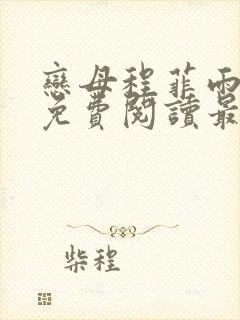 戀母程菲雨
免費閱讀最
柴程